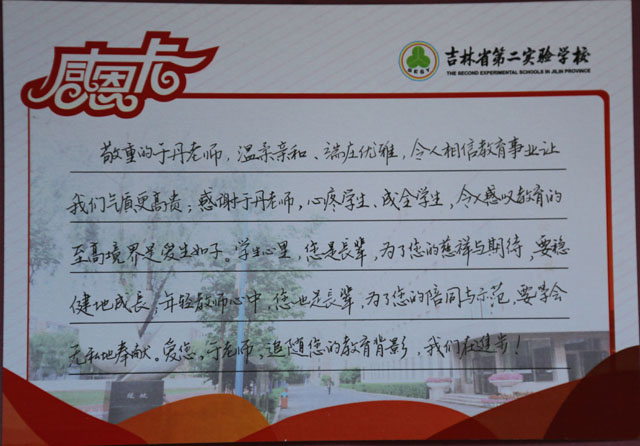 感恩卡
吉林省第二实验学校
THE SECOND EXPERIMENTAL SCHOOLS IN JILIN PROVINCE
敬重的于丹老师，温柔亲和、端庄优雅，令人相信教育事业让
我们气质更高贵；感谢于丹老师，心疼学生、成全学生，令人感叹教育的
至高境界是爱生如子。学生心里，您是長辈，为了您的慈祥与期待，要稳
健地成長；年轻教师心中，您也是長辈，为了您的陪同与示范，要学会
无私地奉献。爱您，于老师，追随您的教育背影，我们在進步！